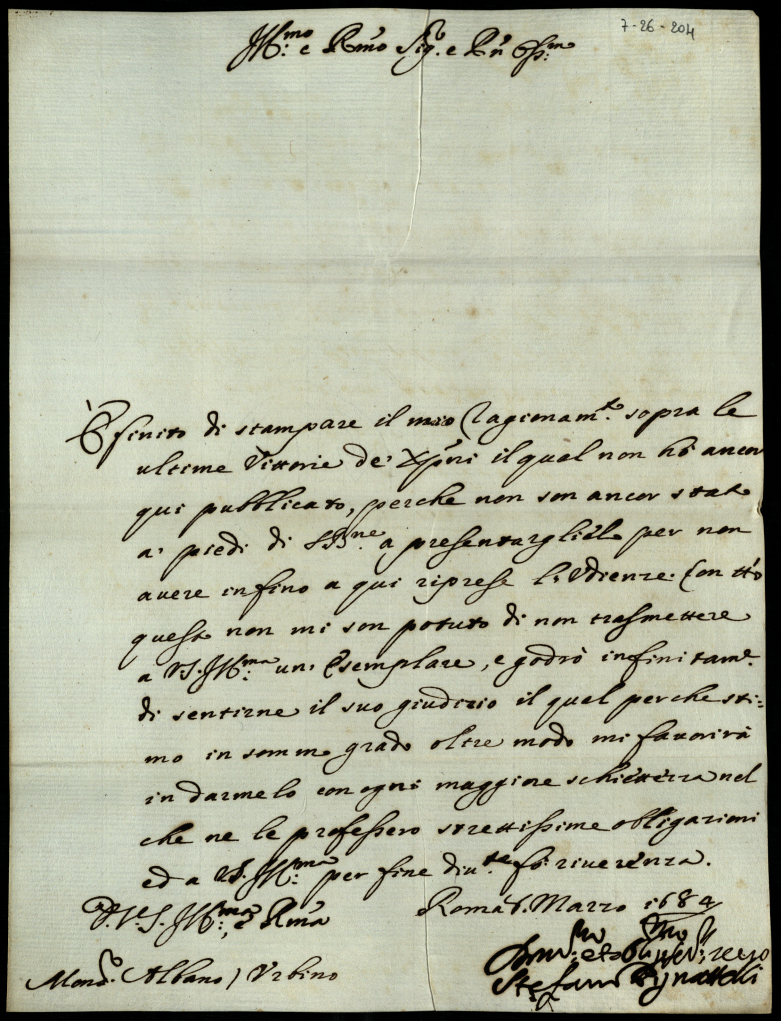 7-26-204
Ill:mo e Rmo Sig.r e Pn Oss:mo
È finito di stampare il mio Ragionam.to sopra le
ultime Vittorie de' Xpni il qual non hò ancor
qui pubblicato, perche non son ancor stato
a' piedi di S. B.ne a presentarglielo per non
avere infino a qui riprese l'Udienze. Con tt'o
questo non mi son potuto di non trasmettere
a V.S. Ill:ma un' Esemplare, e godrò infinitam.e
di sentirne il suo giudizio il qual perche sti=
mo in sommo grado oltre modo mi favorirà
in darmelo con ogni maggiore schiettezza nel
che ne le professero strettissime obligazioni
ed a V.S. Ill:ma per fine div.te fò riverenza.
D. V.S. Ill:ma, e Rma
Roma Marzo 1684
Mons.r Albano / Urbino
Stefano Pignattelli